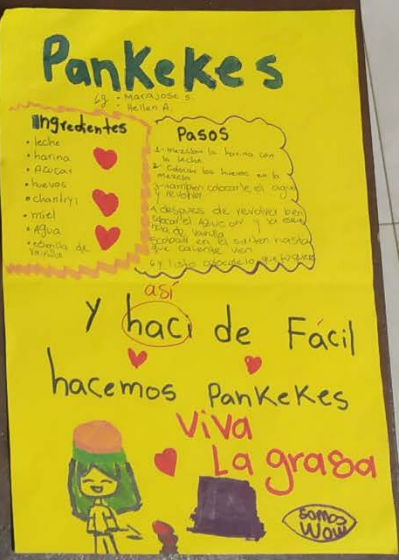 PanKeKes
Lg: • Marajose s.
• Hellen A.
Ingredientes
• leche
• harina
• Azucar
• huevos
• chantiyi
• miel
• Agua
• de vainilla
Pasos
1- mezclar la harina con
la leche
2- Colocar los huevos en la
mezcla
3- tambien colocarle el agua
y revolver
4 despues de revolver bien
colocar el Azucar y la
de vainilla
en el sarten hasta
que caliente bien
6 y listo
así
y haci de Fácil
hacemos PanKeKes
Viva
La grasa
somos
Wow